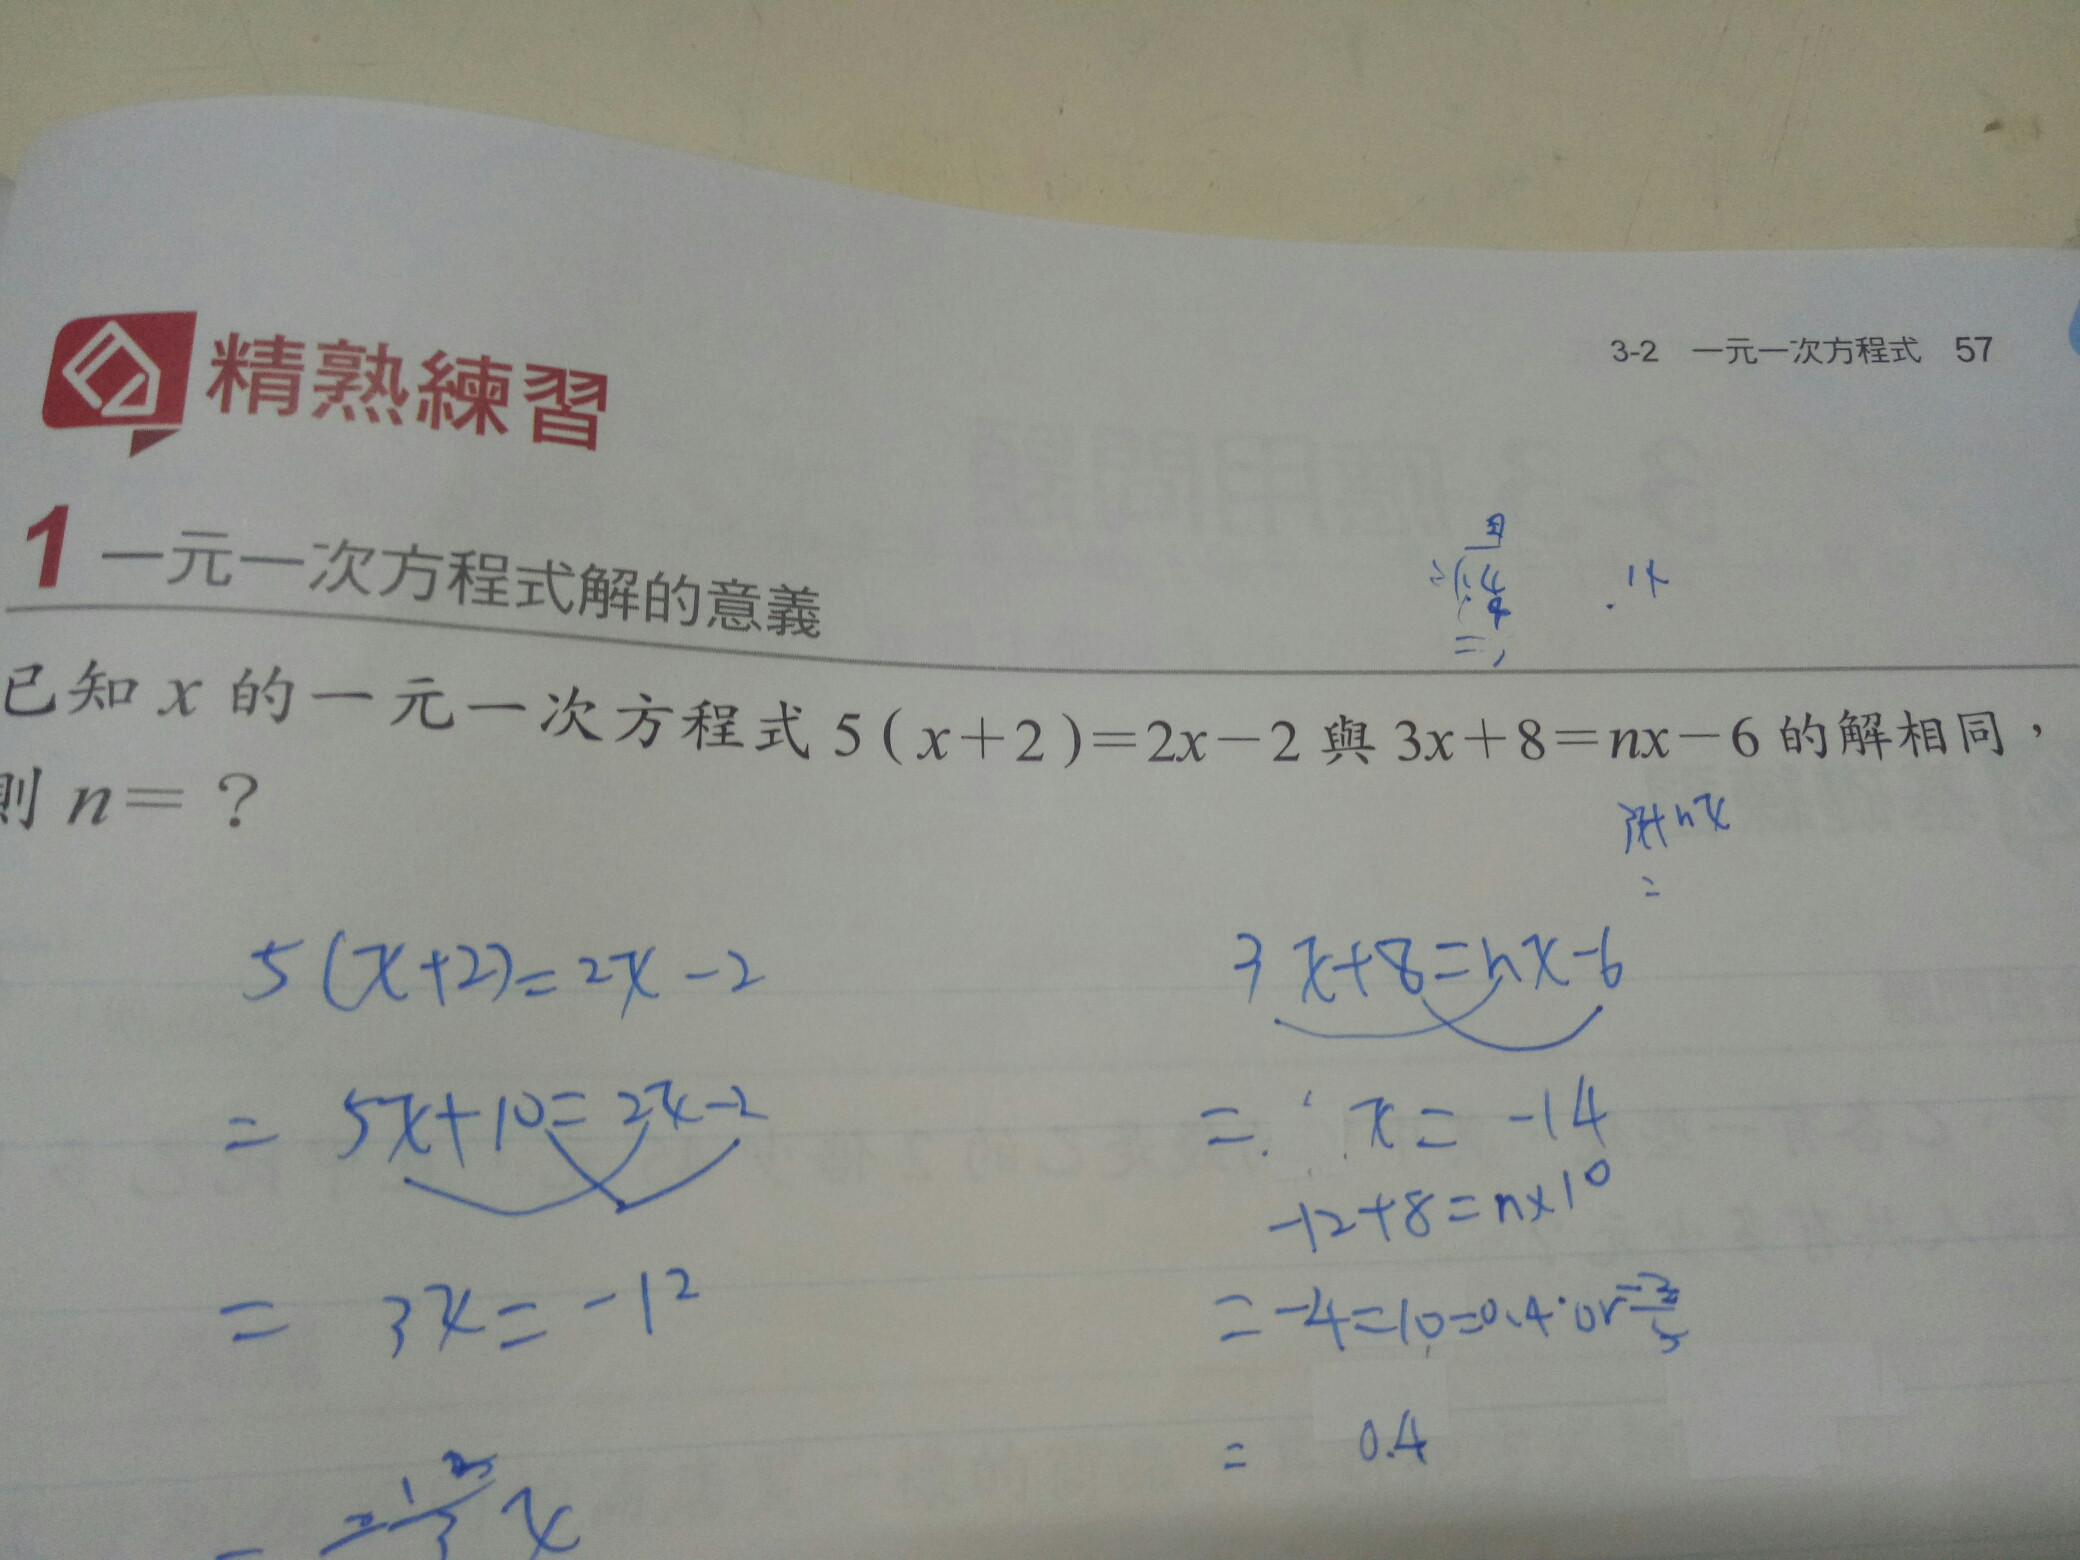 3-2 一元一次方程式 57
精熟練習
1 一元一次方程式解的意義
已知 x 的一元一次方程式 5(x+2)=2x-2 與 3x+8=nx-6 的解相同，
則 n=？
5(x+2)=2x-2
= 5x+10=2x-2
= 3x=-12
3x+8=nx-6
= x=-14
-12+8=nx10
=-4=10=0.4 or
= 0.4